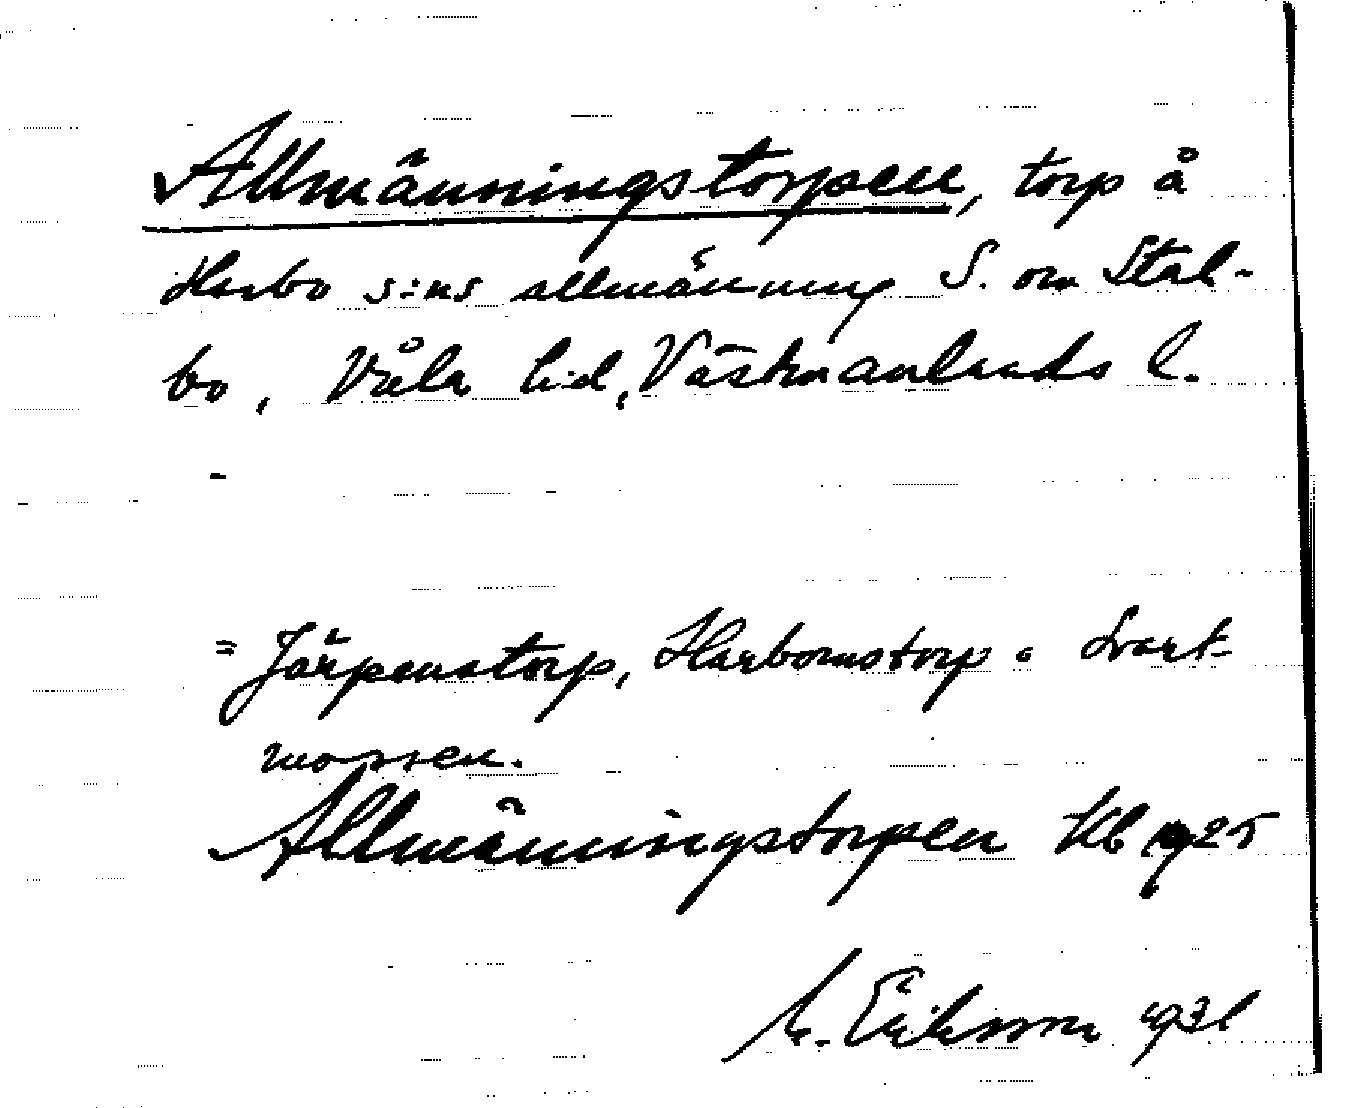 Allmänningstorpen, torp å
Harbo s:ns allmänning S. om Stal-
bo, Våla hd, Västmanlands l.
= Järpenstorp, Harbomstorp o Svart-
mossen.
Allmänningstorpen Kb 1925
M. Eriksson 1931